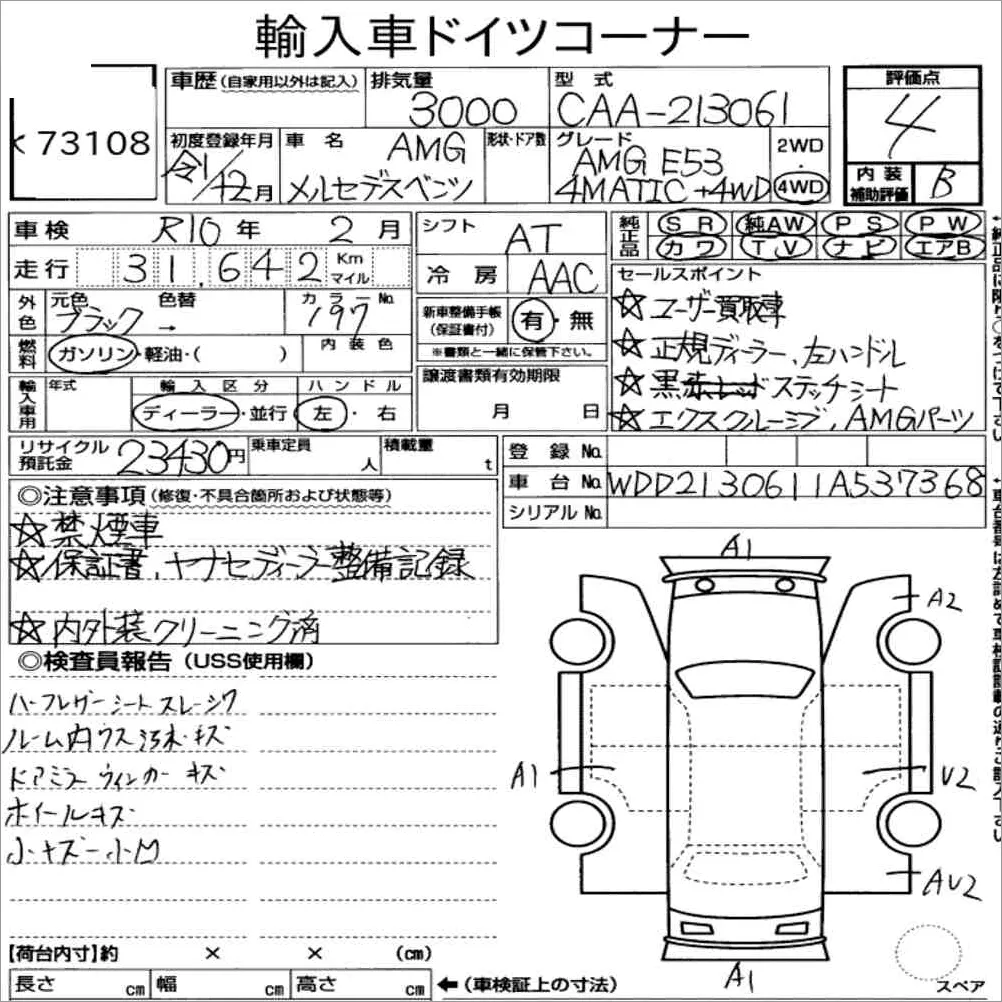 輸入車ドイツコーナー
73108
車歴(自家用以外は記入) 排気量 3000 型式 CAA-213061 評価点 4
初度登録年月 令1/12月 車名 AMG メルセデスベンツ 形状・ドア数 グレード AMG E53 4MATIC+4WD 2WD 4WD 内装補助評価 B
車検 R10年 2月 シフト AT 純正品 SR 純AW PS PW
カワ TV ナビ エアB
走行 31,642 Km マイル 冷房 AAC セールスポイント
外色 元色 ブラック 色替 → カラーNo. 197 新車整備手帳(保証書付) 有・無 ☆ユーザー買取車
燃料 ガソリン・軽油・( ) 内装色 ※書類と一緒に保管下さい。 ☆正規ディーラー、左ハンドル
輸入車用 年式 輸入区分 ディーラー・並行 ハンドル 左・右 譲渡書類有効期限 月 日 ☆黒 ステッチシート
☆エクスクルーシブ、AMGパーツ
リサイクル預託金 23430円 乗車定員 人 積載量 t 登録No.
車台No. WDD2130611A537368
シリアルNo.
◎注意事項(修復・不具合箇所および状態等)
☆禁煙車
☆保証書、ヤナセディーラー整備記録
☆内外装クリーニング済
◎検査員報告(USS使用欄)
ハーフレザーシートスレ・シワ
ルーム内ウス汚レ・キズ
ドアミラーウィンカーキズ
ホイールキズ
小キズー小凹
A1
A2
A1
V2
AV2
A1
スペア
【荷台内寸】約 × × (cm)
長さ cm 幅 cm 高さ cm ←(車検証上の寸法)